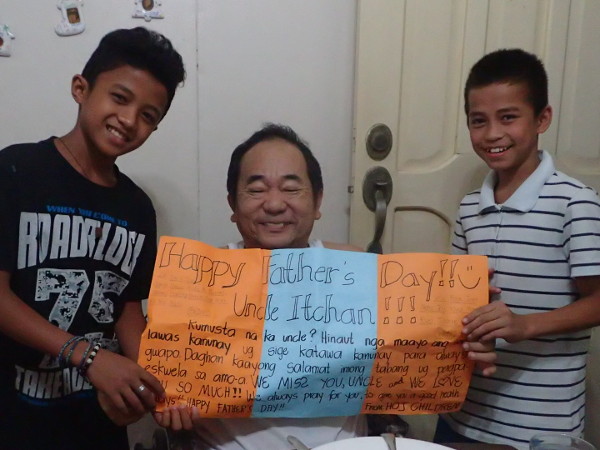 WHEN YOU COME TO
ROADBLOCK
75
TAKE
Happy Father's Day!!
Uncle Itchan!!!
Kumusta na ka uncle? Hinaut nga maayo ang
lawas kanunay ug sige katawa kanunay para always
guapo. Daghan kaayong salamat imong tabang ug pagpa-
eskwela sa amo-a. WE MISS YOU, UNCLE and WE LOVE
YOU SO MUCH!! We always pray for you, to give you a good health
HAPPY FATHER'S DAY!!
From HOJ CHILDREN